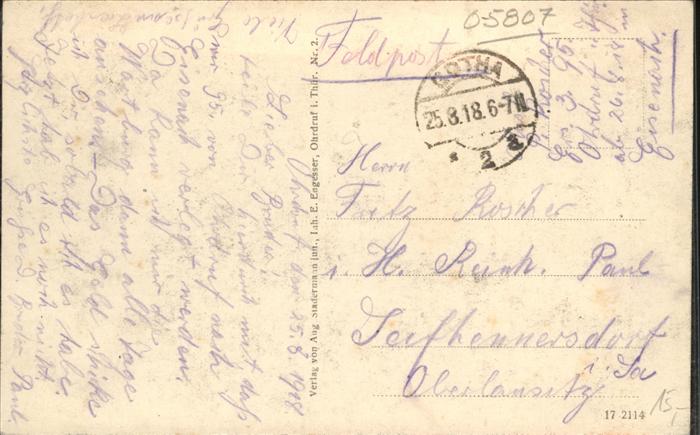 05807
Feldpost
GOTHA
25.8.18.6-7N.
* 2 a
Ers. R. 95
Ohrdruf i. Th.
ab 26.8.18 in
Eisenach.
Herrn
Fritz Roscher
i. H. Reinh. Paul
Seifhennersdorf
i/Sa
Oberlausitz
17 2114
15,-
Verlag von Aug. Stadermann jun., Inh. E. Engesser, Ohrdruf i. Thür. Nr. 2.
Ohrdruf den 25.8.1918
Lieber Bruder!
Teile Dir hierdurch mit, daß
95 von Ohrdruf nach
Eisenach verlegt werden.
Da kann ich mir die
Wartburg dann alle Tage
ansehen. Das Geld schicke
ich Dir, sobald ich es habe.
Jetzt hab ich es noch nicht.
Herzlichste Grüße D. Bruder Paul
Viele